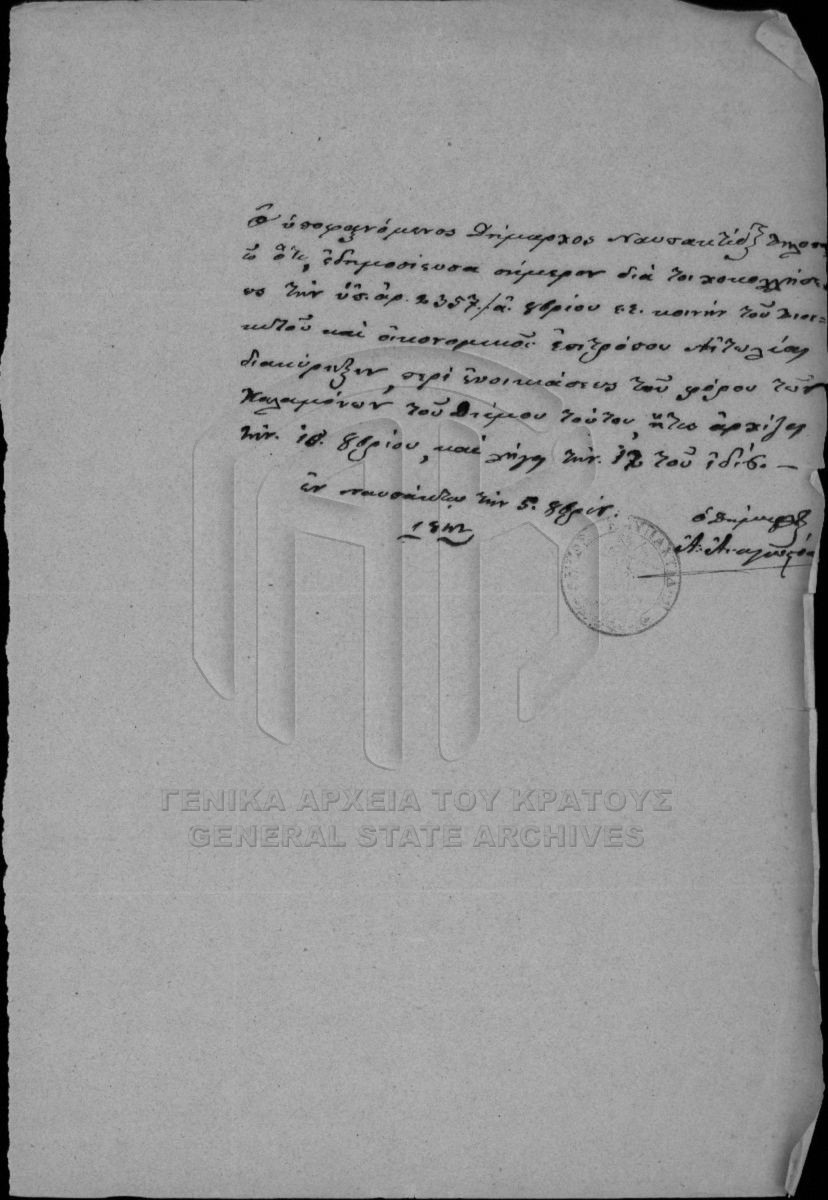 Ὁ ὑποφαινόμενος Δήμαρχος Ναυπακτίας δηλοποι
ῶ ὅτι, ἐδημοσίευσα σήμερον διὰ τοιχοκολλήσε
ως τὴν ὑπ. ἀρ. 2357./ά. 8βρίου ε.ἔ. κοινὴν τοῦ Διοι-
κητοῦ καὶ οἰκονομικοῦ ἐπιτρόπου Αἰτωλίας
διακήρυξιν, περὶ ἐνοικιάσεως τοῦ φόρου τῶν
Καλαμώνων τοῦ Δήμου τούτου, ἥτις ἀρχίζει
τὴν. 8βρίου, καὶ λήγει τὴν. τοῦ ἰδίου. —
ἐν Ναυπάκτῳ τὴν 5. 8βρίου.
ὁ Δήμαρχος
ΓΕΝΙΚΑ ΑΡΧΕΙΑ ΤΟΥ ΚΡΑΤΟΥΣ
GENERAL STATE ARCHIVES